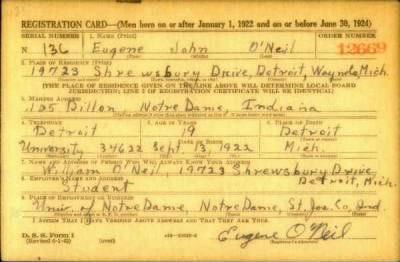 REGISTRATION CARD—(Men born on or after January 1, 1922 and on or before June 30, 1924)
SERIAL NUMBER 1. NAME (Print) ORDER NUMBER
N 136 Eugene John O'Neil 12669
2. PLACE OF RESIDENCE (Print)
19723 Shrewsbury Drive, Detroit, Wayne Mich.
[THE PLACE OF RESIDENCE GIVEN ON THE LINE ABOVE WILL DETERMINE LOCAL BOARD
JURISDICTION; LINE 2 OF REGISTRATION CERTIFICATE WILL BE IDENTICAL]
3. MAILING ADDRESS
125 Dillon, Notre Dame, Indiana
4. TELEPHONE 5. AGE IN YEARS 6. PLACE OF BIRTH
Detroit 19 Detroit
University 34622 Sept. 13, 1922 Mich.
7. NAME AND ADDRESS OF PERSON WHO WILL ALWAYS KNOW YOUR ADDRESS
William O'Neil, 19723 Shrewsbury Drive,
8. EMPLOYER'S NAME AND ADDRESS Detroit, Mich.
Student
9. PLACE OF EMPLOYMENT OR BUSINESS
Univ. of Notre Dame, Notre Dame, St. Jos. Co. Ind.
I AFFIRM THAT I HAVE VERIFIED ABOVE ANSWERS AND THAT THEY ARE TRUE.
D. S. S. Form 1
(Revised 6-1-42)
Eugene O'Neil